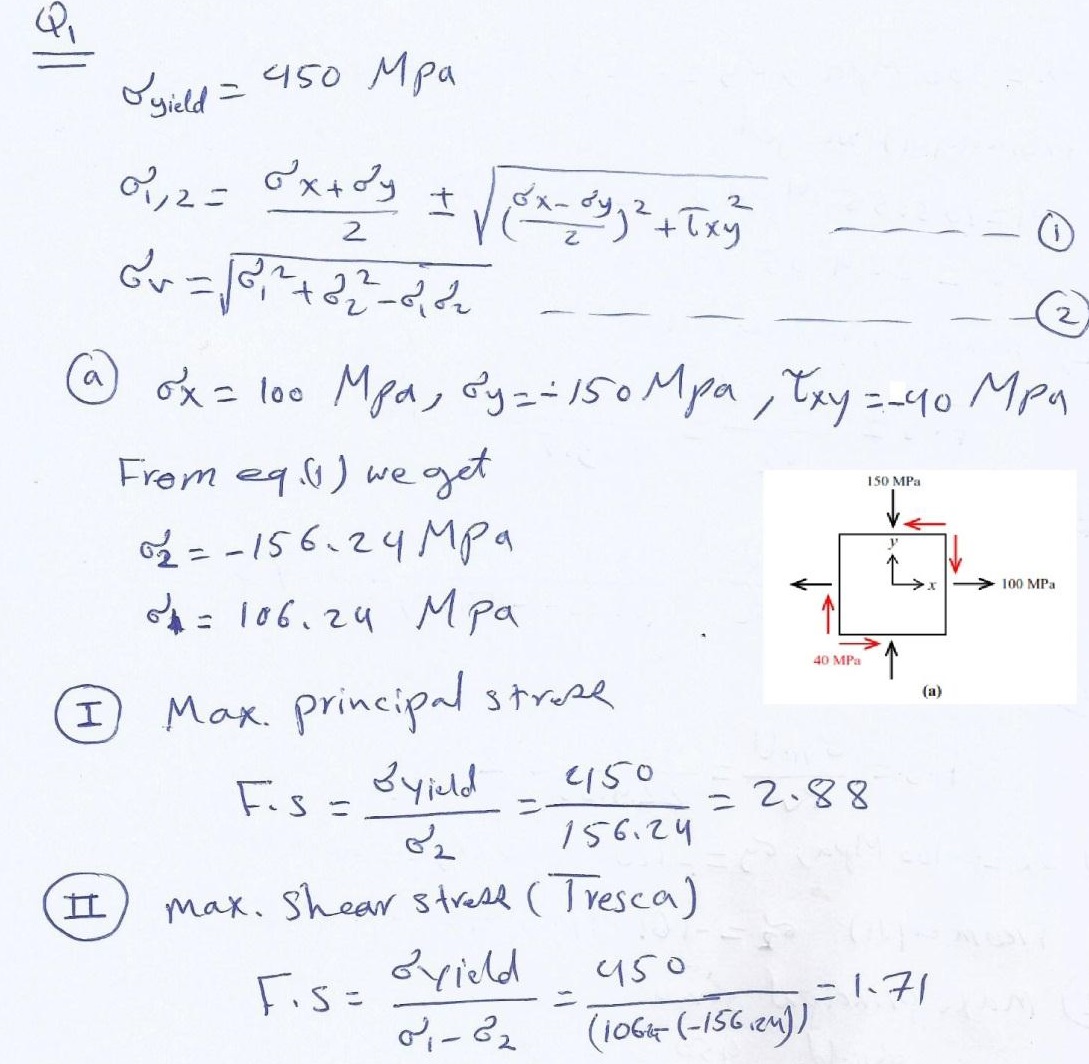 Q1
σyield = 450 Mpa
σ1,2 = (σx+σy)/2 ± √((σx-σy)/2)² + τxy² ------ ①
σv = √σ1²+σ2²-σ1σ2 ------ ②
ⓐ σx = 100 Mpa, σy = -150 Mpa, τxy = -40 Mpa
From eq.(1) we get
σ2 = -156.24 Mpa
σ1 = 106.24 Mpa
150 MPa
y
x
100 MPa
40 MPa
(a)
Ⓘ Max. principal stress
F.s = σyield/σ2 = 450/156.24 = 2.88
II max. Shear stress (Tresca)
F.s = σyield/(σ1-σ2) = 450/(106.24-(-156.24)) = 1.71